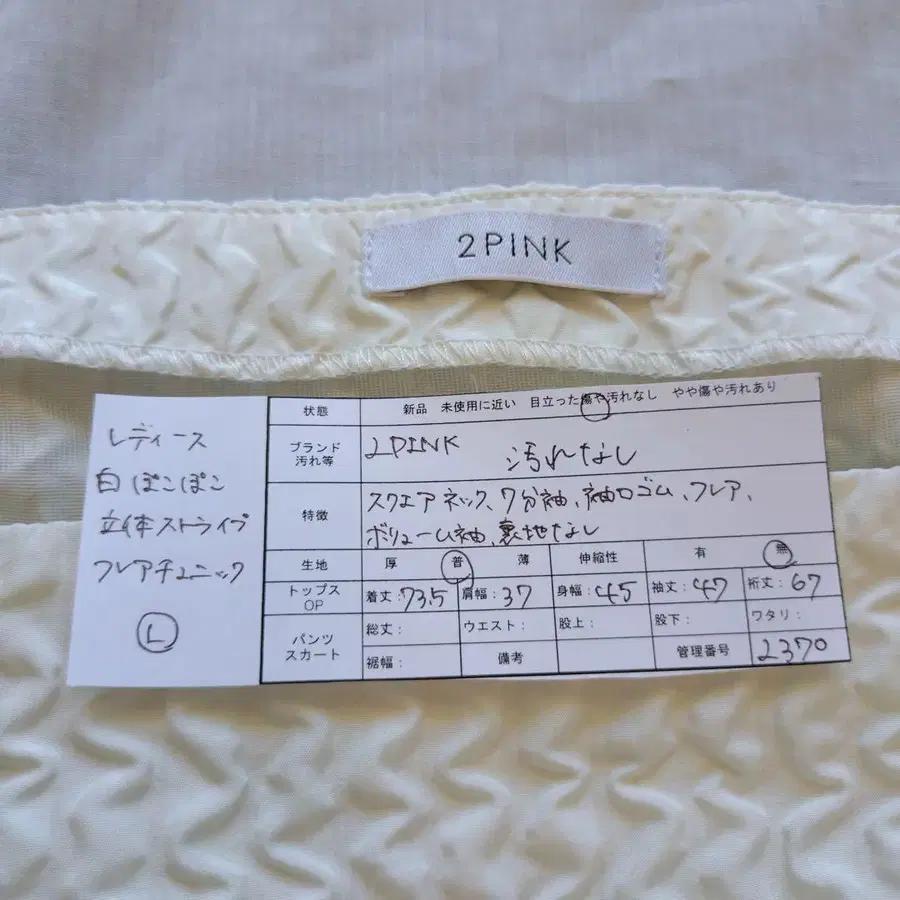 2PINK
レディース
白ぽこぽこ
立体ストライプ
フレアチュニック
L
状態 新品 未使用に近い 目立った傷や汚れなし やや傷や汚れあり
ブランド 汚れ等 2PINK 汚れなし
特徴 スクエアネック、7分袖、袖口ゴム、フレア、
ボリューム袖、裏地なし
生地 厚 普 薄 伸縮性 有 無
トップス OP 着丈:73.5 肩幅:37 身幅:45 袖丈:47 裄丈:67
パンツ スカート 総丈: ウエスト: 股上: 股下: ワタリ:
裾幅: 備考 管理番号 2370